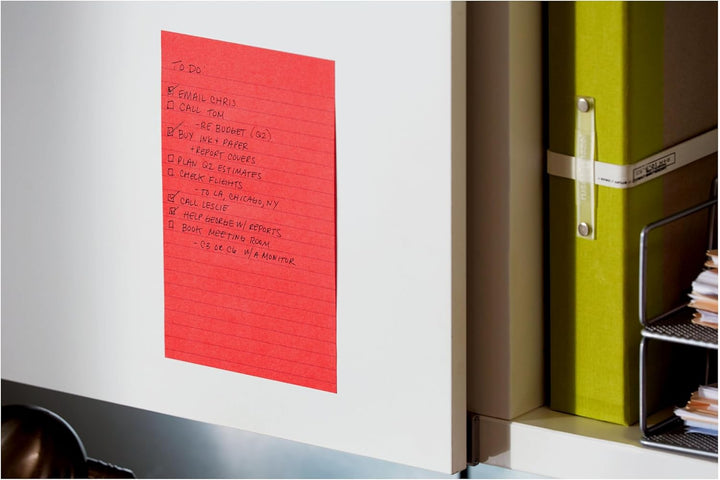 TO DO:
EMAIL CHRIS
CALL TOM
-RE BUDGET (Q2)
BUY INK + PAPER
+ REPORT COVERS
PLAN Q2 ESTIMATES
CHECK FLIGHTS
- TO LA, CHICAGO, NY
CALL LESLIE
HELP GEORGE W/ REPORTS
BOOK MEETING ROOM
- C3 OR C6 W/ A MONITOR